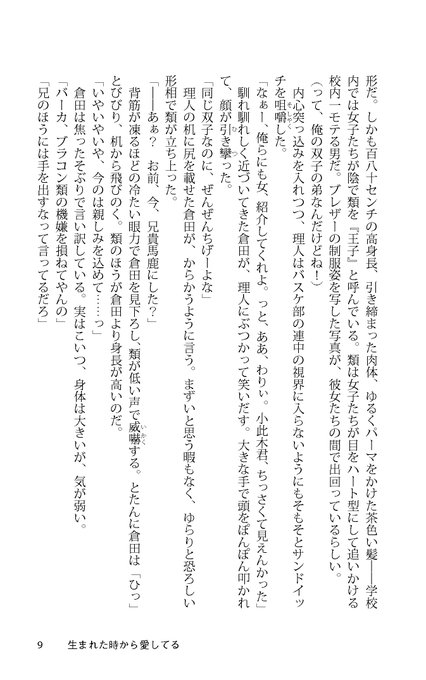 形だ。しかも百八十センチの高身長、引き締まった肉体、ゆるくパーマをかけた茶色い髪――学校
内では女子たちが陰で類を『王子』と呼んでいる。類は女子たちが目をハート型にして追いかける
校内一モテる男だ。ブレザーの制服姿を写した写真が、彼女たちの間で出回っているらしい。
（って、俺の双子の弟なんだけどね！）
内心突っ込みを入れつつ、理人はバスケ部の連中の視界に入らないようにもそもそとサンドイッ
チを咀嚼した。
そしゃく
「なぁー 俺らにも女、紹介してくれよ。っと、ああ、わりぃ。小此木君、ちっさくて見えんかった」
馴れ馴れしく近づいてきた倉田が、理人にぶつかって笑いだす。大きな手で頭をぽんぽん叩かれ
て、顔が引き攣った。
つ
「同じ双子なのに、ぜんぜんちげーよな」
理人の机に尻を載せた倉田が、からかうように言う。まずいと思う暇もなく、ゆらりと恐ろしい
形相で類が立ち上った。
「――あぁ？ お前、今、兄貴馬鹿にした？」
背筋が凍るほどの冷たい眼力で倉田を見下ろし、類が低い声で威嚇する。とたんに倉田は「ひっ」
いかく
とびびり、机から飛びのく。類のほうが倉田より身長が高いのだ。
「いやいやいや、今のは親しみを込めて……っ」
倉田は焦ったそぶりで言い訳している。実はこいつ、身体は大きいが、気が弱い。
「バーカ、ブラコン類の機嫌を損ねてやんの」
「兄のほうには手を出すなって言ってるだろ」
9 生まれた時から愛してる